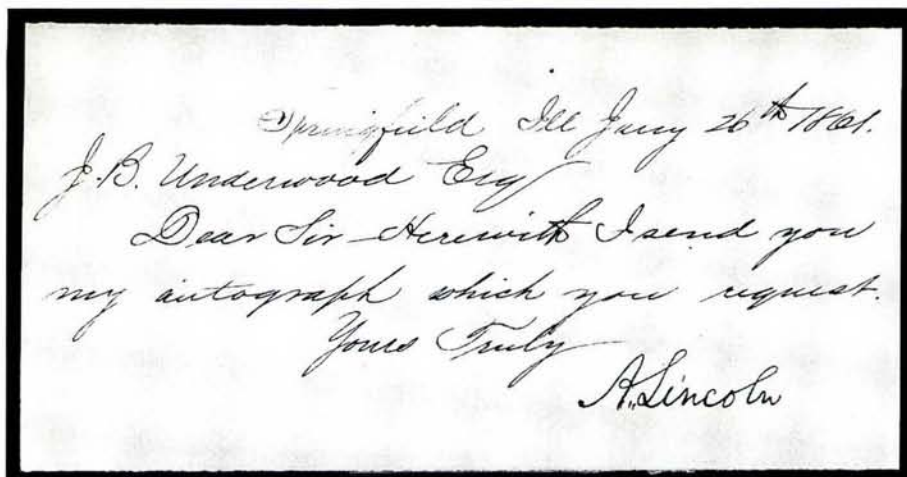 Springfield Ill Jany 26th 1861.
J. B. Underwood Esq
Dear Sir - Herewith I send you
my autograph which you request.
Yours Truly
A. Lincoln